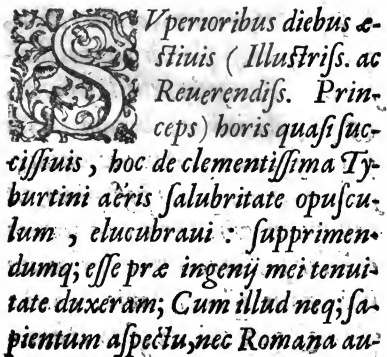 SVperioribus diebus æ-
ſtiuis ( Illuſtriſs. ac
Reuerendiſs. Prin-
ceps) horis quaſi ſuc-
ciſſiuis, hoc de clementiſſima Ty-
burtini aëris ſalubritate opuſcu-
lum , elucubraui : ſupprimen-
dumq; eſſe præ ingenij mei tenui-
tate duxeram; Cum illud neq; ſa-
pientum aſpectu, nec Romana au-